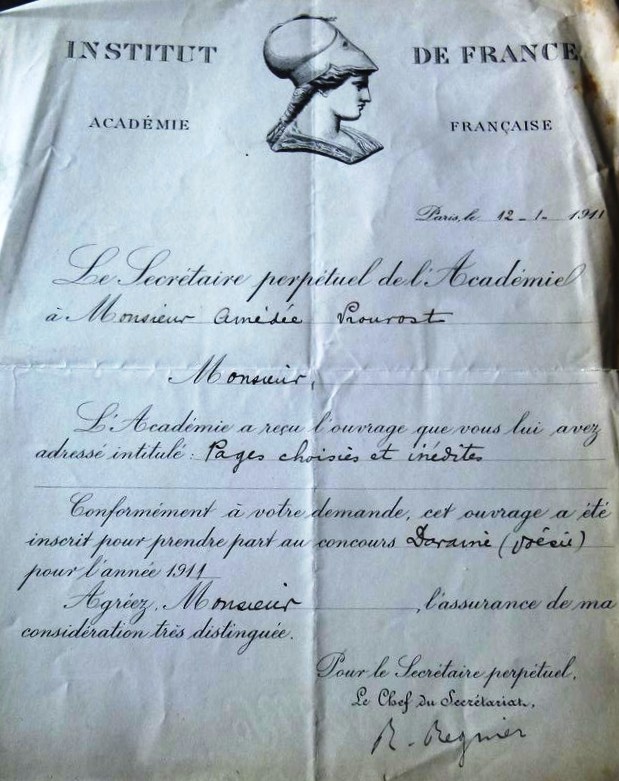 INSTITUT DE FRANCE
ACADÉMIE FRANÇAISE
Paris, le 12-1-1911
Le Secrétaire perpétuel de l'Académie
à Monsieur Amédée Prouvost
Monsieur,
L'Académie a reçu l'ouvrage que vous lui avez
adressé intitulé : Pages choisies et inédites
Conformément à votre demande, cet ouvrage a été
inscrit pour prendre part au concours (poésie)
pour l'année 1911
Agréez, Monsieur, l'assurance de ma
considération très distinguée.
Pour le Secrétaire perpétuel,
Le Chef du Secrétariat,
R. Regnier